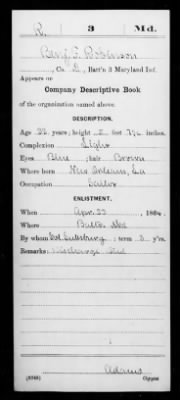 R. 3 Md.
Benj. F. Robinson
, Co. D, Batt'n 3 Maryland Inf.
Appears on
Company Descriptive Book
of the organization named above.
DESCRIPTION.
Age 22 years; height 5 feet 7½ inches.
Complexion Light
Eyes Blue; hair Brown
Where born New Orleans, La
Occupation Sailor
ENLISTMENT.
When Apr. 22, 1864.
Where Balto. Md
By whom Col.; term 3 y'rs.
Remarks: Discharge
Adams
Copyist.